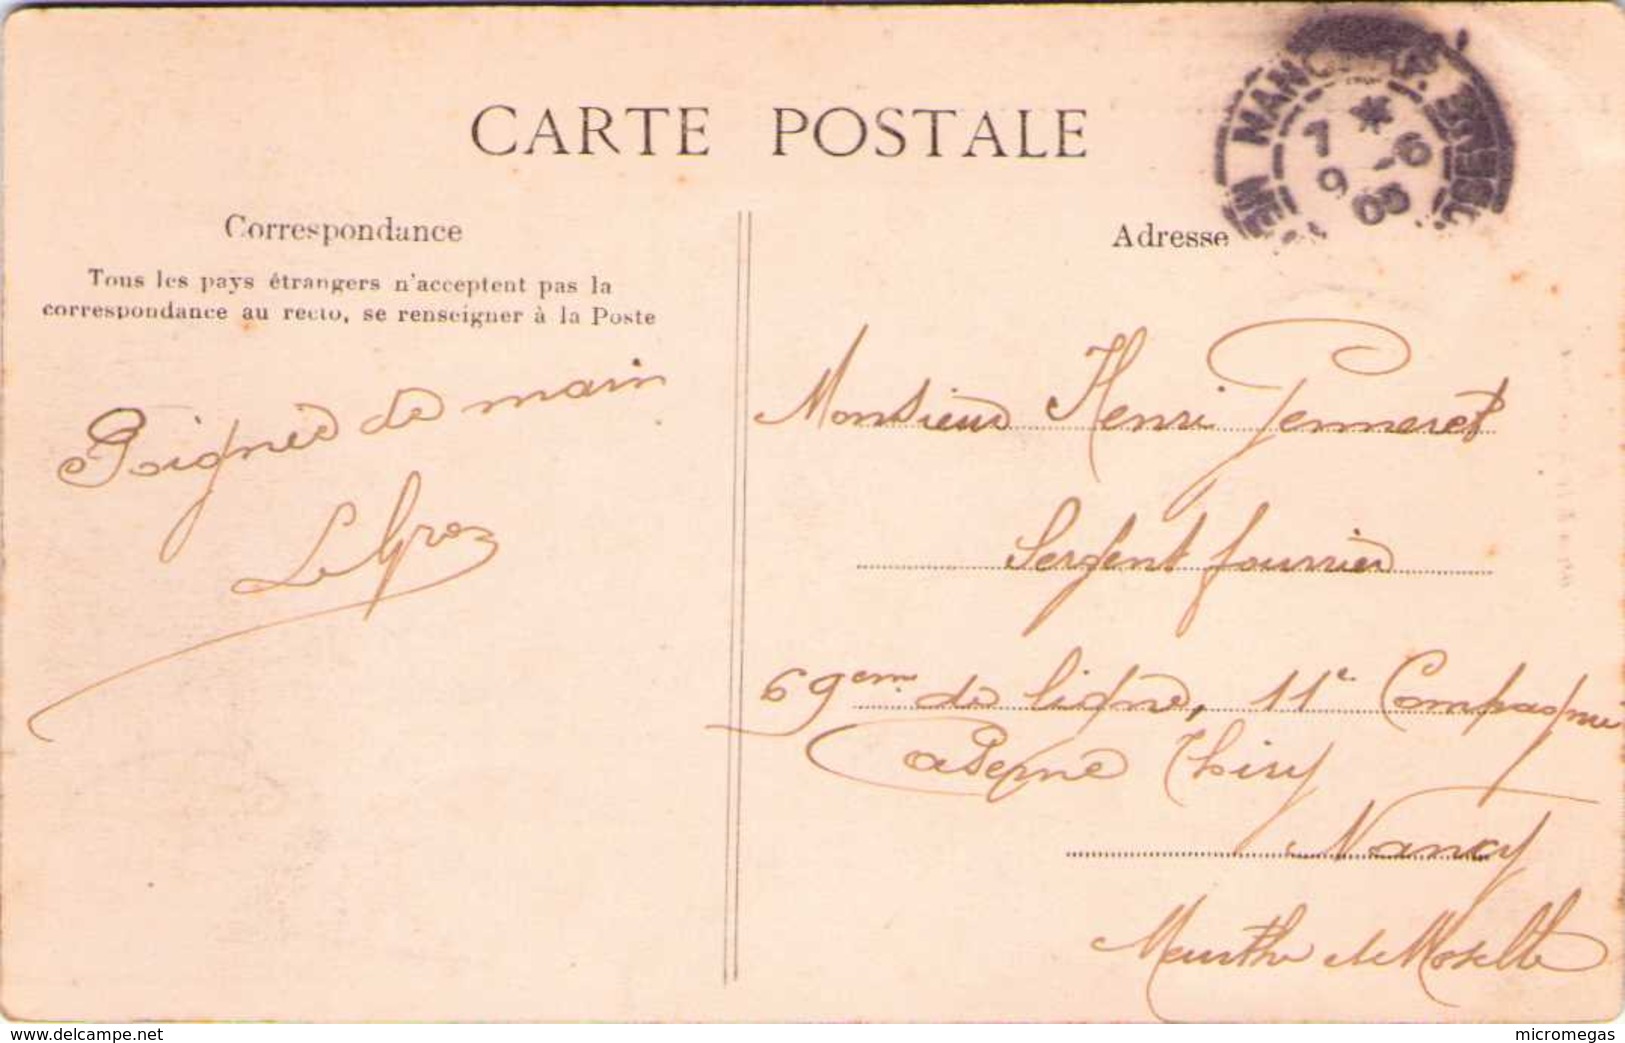 CARTE POSTALE
Correspondance
Tous les pays étrangers n'acceptent pas la
correspondance au recto, se renseigner à la Poste
Poignée de main
LeGros
Adresse
7 * 6
9 05
Monsieur Henri Jenneret
Sergent fourrier
69eme de ligne, 11e Compagnie
Caserne Thiry
Nancy
Meurthe et Moselle
www.delcampe.net
micromegas